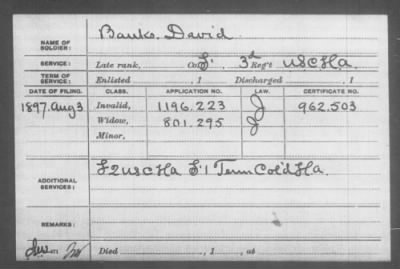 NAME OF SOLDIER: Banks. David
SERVICE: Late rank, Co. F. 3d Reg't USCHa
TERM OF SERVICE: Enlisted , 1 Discharged , 1
DATE OF FILING. CLASS. APPLICATION NO. LAW. CERTIFICATE NO.
1897. Aug 3 Invalid, 1196.223 J 962.503
Widow, 801.295 J
Minor,
ADDITIONAL SERVICES: F2USCHa F1 Tenn Col'd Ha.
REMARKS:
Died , 1 , at